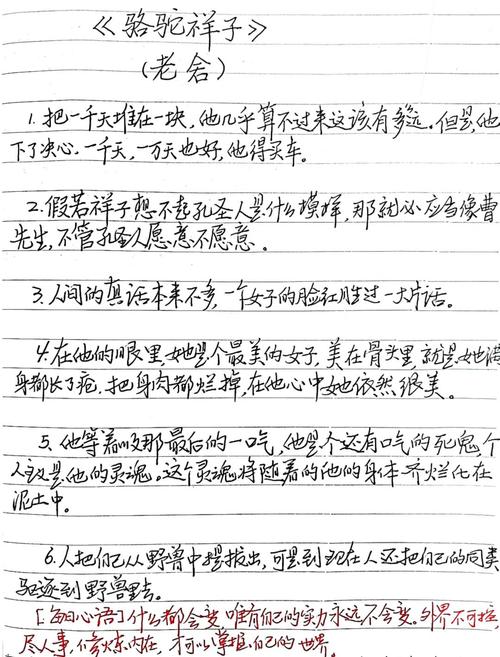 《骆驼祥子》
(老舍)
1. 把一千天堆在一块,他几乎算不过来这该有多远。但是,他
下了决心,一千天,一万天也好,他得买车。
2. 假若祥子想不起孔圣人是什么模样,那就必应当像曹
先生,不管孔圣人愿意不愿意。
3. 人间的真话本来不多,一个女子的脸红胜过一大片话。
4. 在他的眼里,她是个最美的女子,美在骨头里,就是她满
身都长了疮,把身肉都烂掉,在他心中她依然很美。
5. 他等着吸那最后的一口气,他是个还有口气的死鬼,个
人主义是他的灵魂。这个灵魂将随着的他的身体一齐烂化在
泥土中。
6. 人把自己从野兽中提拔出,可是到现在人还把自己的同类
驱逐到野兽里去。
[每日心语]什么都会变,唯有自己的实力永远不会变。外界不可控,
尽人事,修炼内在,才可以掌握自己的世界。